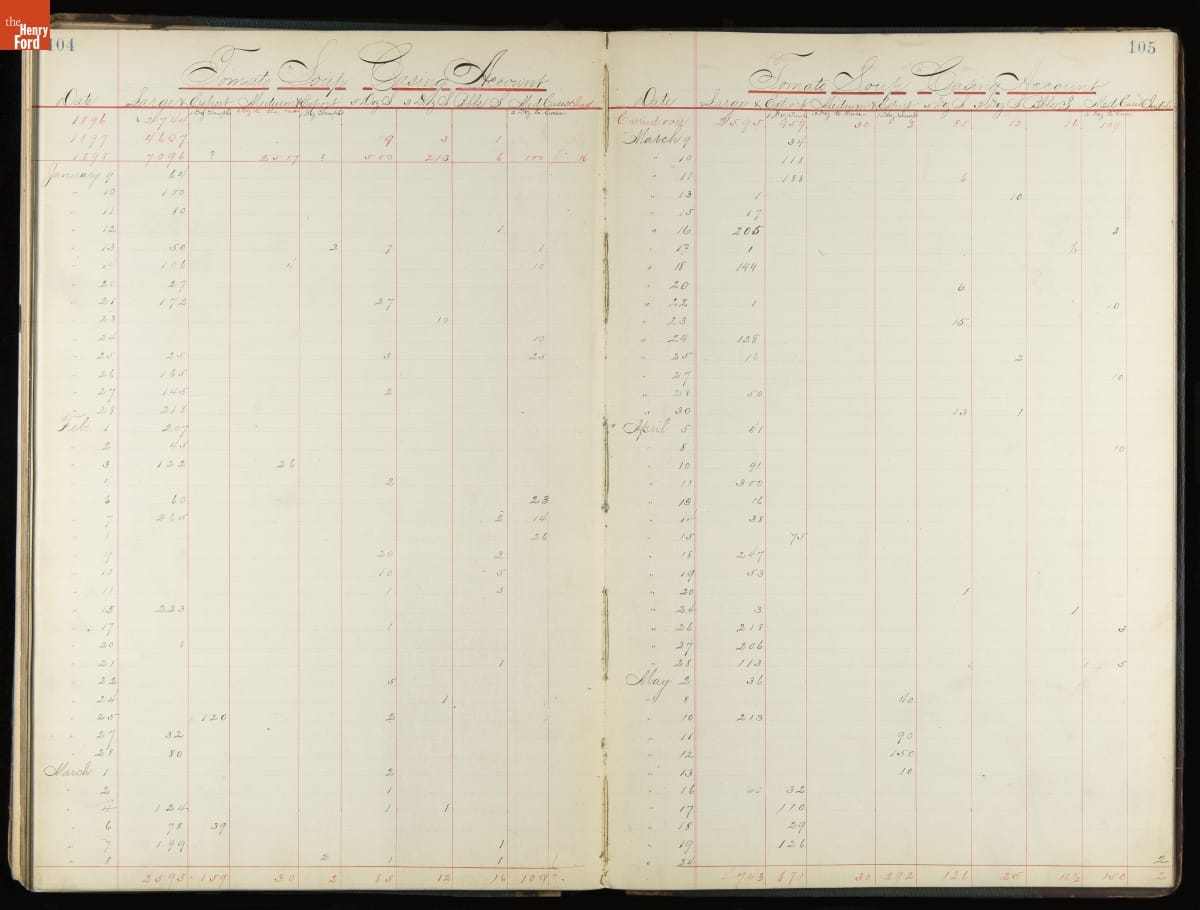 the
Henry
Ford
104
Tomato Soup Casing Account
Date Large & Export Medium & Export 5 Doz S 3 Doz S Bbls S Med. Cases
1896 2744
1897 4607 9 3 1
1898 7096 ? 2517 ? 500 213 6 100 16
January 9 64
" 10 100
" 11 80
" 12 1
" 13 50 2 7 1
106 4 10
" 20 27
" 21 172 27
" 23 10
" 24 10
" 25 25 3 25
" 26 165
" 27 145 2
" 28 218
Feb 1 207
" 2 45
" 3 122 26
2
" 6 60 23
" 7 265 2 14
26
" 9 20 2
" 10 10 5
" 11 1 3
" 15 223
" 17 1
" 20 8
" 21 1
" 22 5
" 24 1
" 25 120 2
" 27 32
" 28 80
March 1 2
" 2 1
" 4 124 1 1
" 6 78 39
" 7 199 1
" 8 2 1 1 1
2595 159 30 2 85 12 16 109
105
Tomato Soup Casing Account
Date Large & Export Medium & Export 5 Doz S 3 Doz S Bbls S Med. Cases
Carried over 2595 159 30 2 85 12 16 109
March 9 34
" 10 118
" 11 188 6
" 13 1 10
" 15 17
" 16 205 3
" 17 1 ½
" 18 144
" 20 6
" 22 1 10
" 23 15
" 24 138
" 25 16 2
" 27 10
" 28 50
" 30 13 1
April 5 41
" 8 10
" 10 91
" 11 300
" 13 16
" 14 38
" 15 75
" 18 247
" 19 53
" 20 1
" 24 3 1
" 26 218 3
" 27 206
" 28 113 5
May 2 36
" 8 40
" 10 213
" 11 90
" 12 150
" 13 10
" 16 32
" 17 110
" 18 29
" 19 126
" 24 2
743 871 30 292 126 25 16½ 150 2